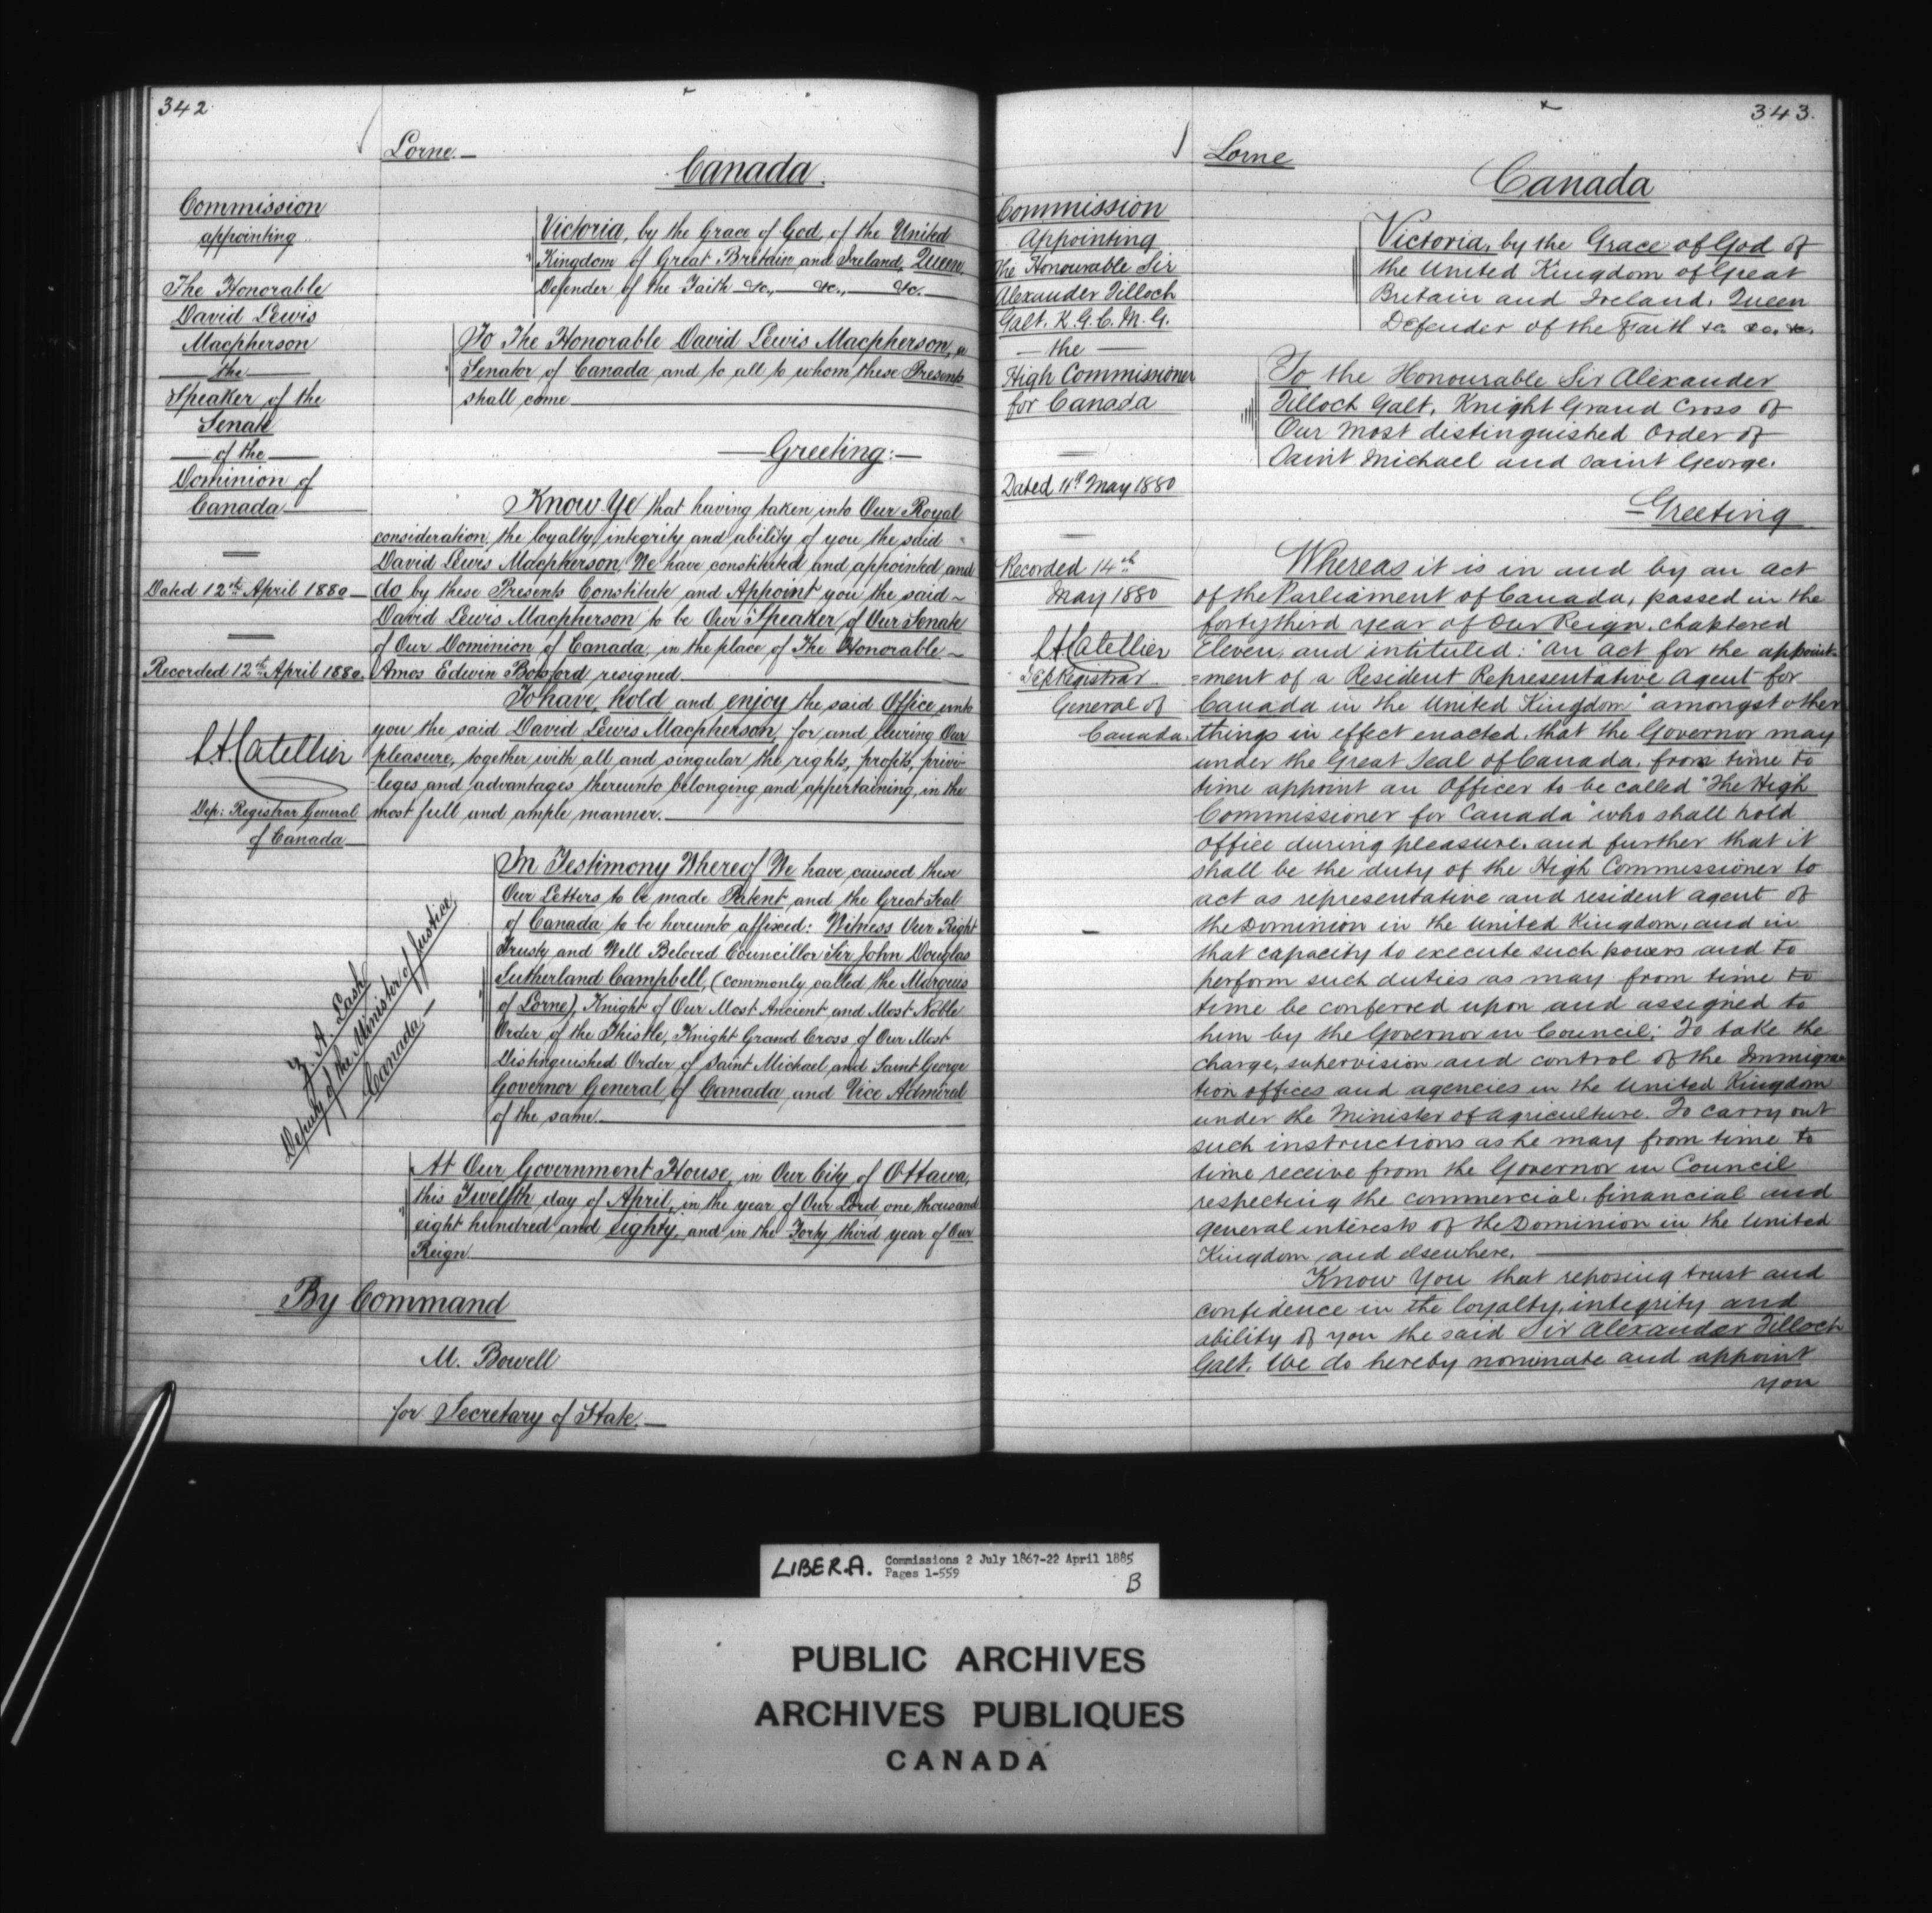 342.
Lorne.—
Canada.
Commission
appointing
The Honorable
David Lewis
Macpherson
the
Speaker of the
Senate
of the
Dominion of
Canada
Dated 12th April 1880
Recorded 12th April 1880.
L H Catellier
Dep: Registrar General
of Canada
Victoria, by the Grace of God, of the United
Kingdom of Great Britain and Ireland, Queen,
Defender of the Faith &c., &c., &c.
To The Honorable David Lewis Macpherson, a
Senator of Canada and to all to whom these Presents
shall come
Greeting:—
Know Ye that having taken into Our Royal
consideration, the loyalty, integrity and ability of you the said
David Lewis Macpherson, We have constituted and appointed and
do by these Presents Constitute and Appoint you the said
David Lewis Macpherson to be Our Speaker of Our Senate
of Our Dominion of Canada, in the place of The Honorable
Amos Edwin Botsford resigned.
To have, hold and enjoy the said Office unto
you the said David Lewis Macpherson, for and during Our
pleasure, together with all and singular the rights, profits, privi-
leges and advantages thereunto belonging and appertaining, in the
most full and ample manner.
In Testimony Whereof We have caused these
Our Letters to be made Patent and the Great Seal
of Canada to be hereunto affixed: Witness Our Right
Trusty and Well Beloved Councillor Sir John Douglas
Sutherland Campbell, (commonly called the Marquis
of Lorne), Knight of Our Most Ancient and Most Noble
Order of the Thistle, Knight Grand Cross of Our Most
Distinguished Order of Saint Michael and Saint George
Governor General of Canada and Vice Admiral
of the same.
Z. A. Lash
Deputy of the Minister of Justice,
Canada.—
At Our Government House, in Our City of Ottawa,
this Twelfth day of April, in the year of Our Lord one thousand
eight hundred and eighty, and in the Forty third year of Our
Reign.
By Command
M. Bowell
for Secretary of State.—
343.
Lorne
Canada
Commission
Appointing
The Honourable Sir
Alexander Tilloch
Galt. K. G. C. M. G.
— the —
High Commissioner
for Canada
Dated 11th May 1880
Recorded 14th
May 1880
L H Catellier
Dep Registrar
General of
Canada.
Victoria, by the Grace of God of
the United Kingdom of Great
Britain and Ireland, Queen
Defender of the Faith &c. &c. &c.
To the Honourable Sir Alexander
Tilloch Galt, Knight Grand Cross of
Our Most distinguished Order of
Saint Michael and Saint George.
Greeting
Whereas it is in and by an act
of the Parliament of Canada, passed in the
forty third year of Our Reign, chaptered
Eleven, and intituled: "An act for the appoint-
=ment of a Resident Representative Agent for
Canada in the United Kingdom" amongst other
things in effect enacted, that the Governor may
under the Great Seal of Canada, from time to
time appoint an Officer to be called "The High
Commissioner for Canada" who shall hold
office during pleasure, and further that it
shall be the duty of the High Commissioner to
act as representative and resident agent of
the Dominion in the United Kingdom, and in
that capacity to execute such powers and to
perform such duties as may from time to
time be conferred upon and assigned to
him by the Governor in Council; To take the
charge, supervision and control of the Immigra
tion offices and agencies in the United Kingdom
under the Minister of Agriculture. To carry out
such instructions as he may from time to
time receive from the Governor in Council
respecting the commercial, financial and
general interests of the Dominion in the United
Kingdom and elsewhere.
Know You that reposing trust and
confidence in the loyalty, integrity and
ability of you the said Sir Alexander Tilloch
Galt, We do hereby nominate and appoint
you
LIBER.A. Commissions 2 July 1867-22 April 1885
Pages 1-559
B
PUBLIC ARCHIVES
ARCHIVES PUBLIQUES
CANADA